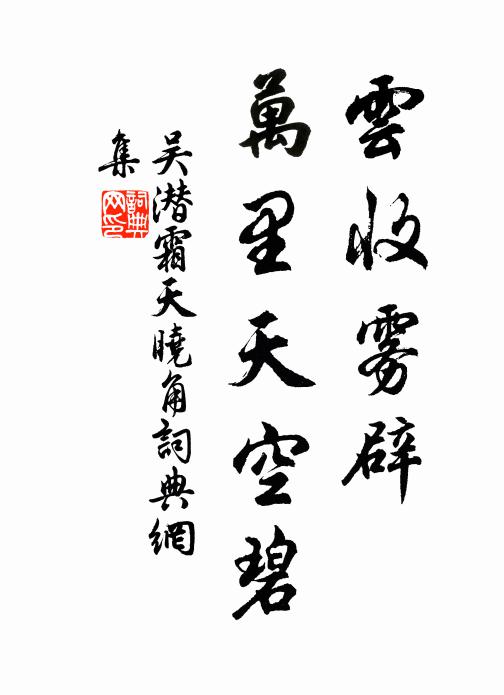 雲收雾辟
萬里天空碧
吴潜霜天曉角詞典網
集
詞典
网印